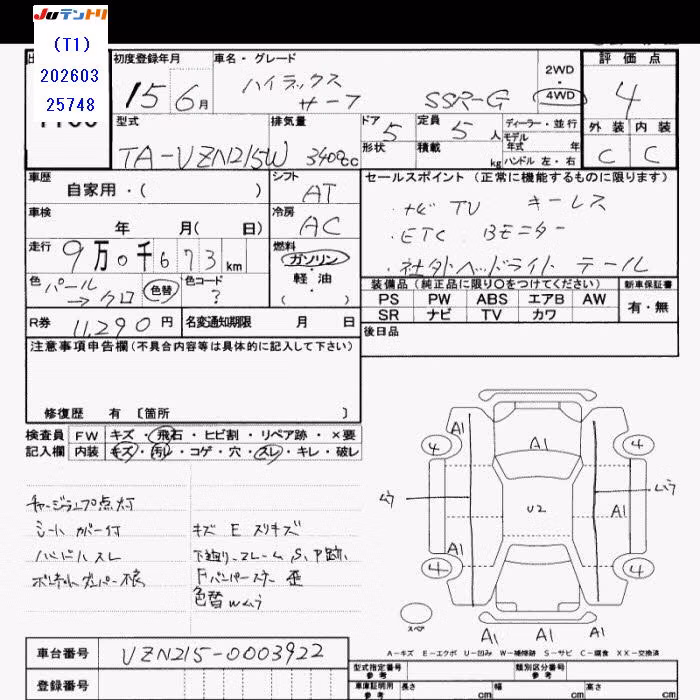 Juテントリ
(T1)
202603
25748
初度登録年月
車名・グレード
2WD
・
4WD
評価点
15 6月
ハイラックス
サーフ
SSR-G
4
型式
排気量
ドア 5
定員 5人
ディーラー・並行
外装 内装
TA-VZN215W 3400cc
形状
積載 kg
モデル年式 年
ハンドル 左・右
C C
車歴
自家用・( )
シフト
AT
セールスポイント(正常に機能するものに限ります)
・ナビ TV キーレス
車検 年 月( 日)
冷房
AC
・ETC Bモニター
走行 9万0千673km
燃料
ガソリン
・社外ヘッドライト テール
色 パール
→クロ
色替
色コード
?
軽油
・( )
装備品(純正品に限り〇をつけてください)
新車保証書
PS PW ABS エアB AW
有・無
SR ナビ TV カワ
R券 11,290円
名変通知期限 月 日
後日品
注意事項申告欄(不具合内容等は具体的に記入して下さい)
修復歴 有 [箇所 ]
検査員
記入欄
FW キズ・飛石・ヒビ割・リペア跡・×要
内装 キズ・汚レ・コゲ・穴・スレ・キレ・破レ
チャージランプ点灯
シートカバー付
ハンドルスレ
キズ E スリキズ
下廻り、フレーム S、P跡、
Fバンパーステー 歪
色替wムラ
A1
A1
A1
4
4
ムラ
ムラ
U2
A1
A1
4
4
スペア
A1
A1
A1
A-キズ E-エクボ U-凹み W-補修跡 S-サビ C-腐食 XX-交換済
車台番号 VZN215-0003922
登録番号
型式指定番号
参考
類別区分番号
参考
車庫証明用
参考
長さ cm
幅 cm
高さ cm